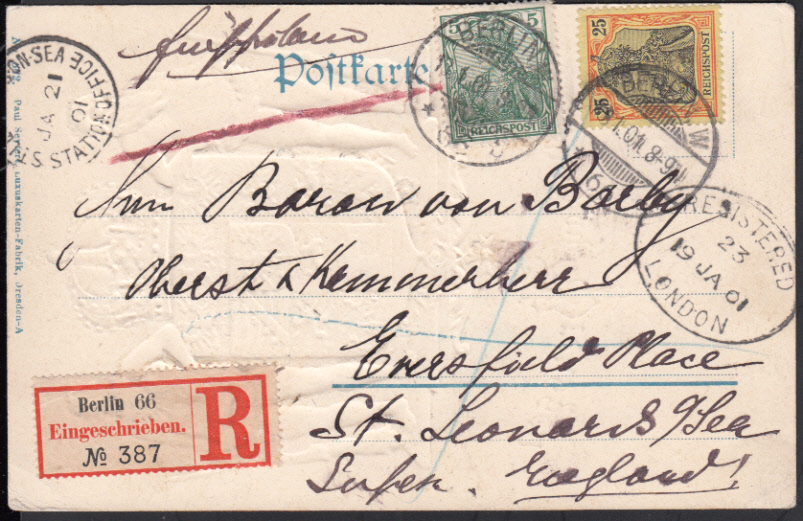 Postkarte
5 5
REICHSPOST
25 25
REICHSPOST
BERLIN
BERLIN W
.01. 8-9
JA 21
01
STATION OFFICE
REGISTERED
23
19 JA 01
LONDON
Baron von Barby
Oberst & Kammerherr
Eversfield Place
St. Leonards o/Sea
England!
Berlin 66
Eingeschrieben.
№ 387
R
Luxuskarten-Fabrik, Dresden-A